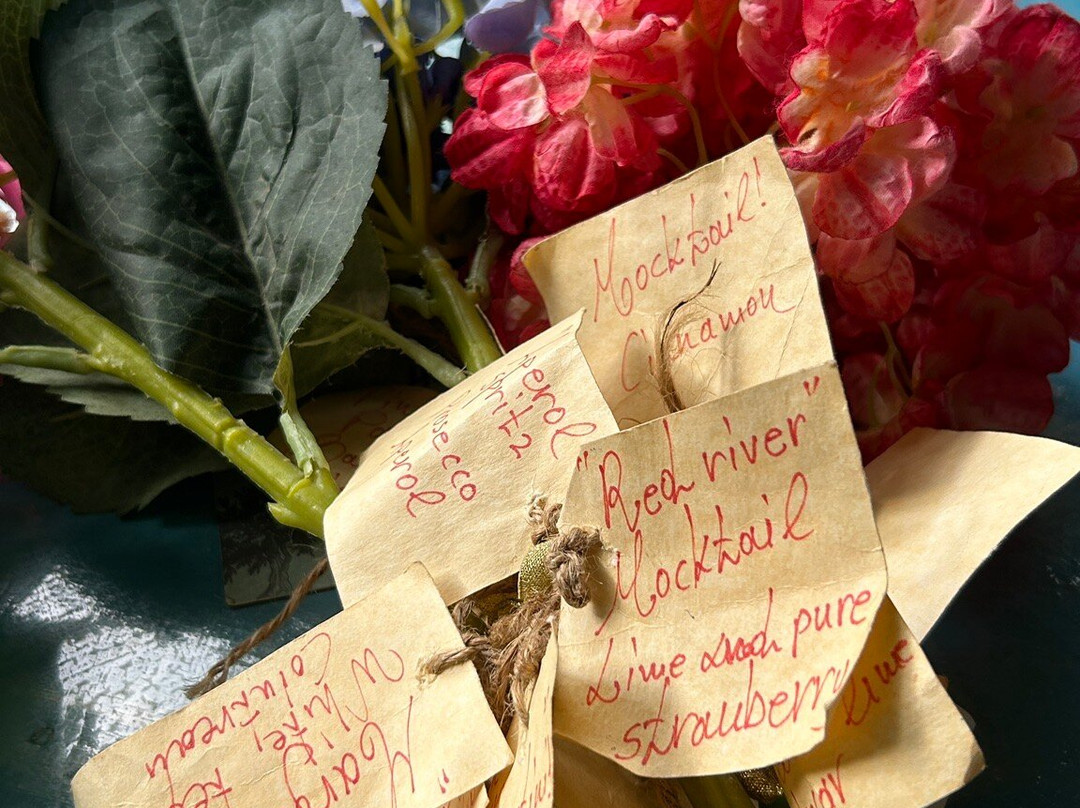 Mocktail!
Cinnamon
Perol
Spritz
Prosecco
Aperol
"Red river"
Mocktail
Lime and pure
strawberry
Lime
White,
Cointreau